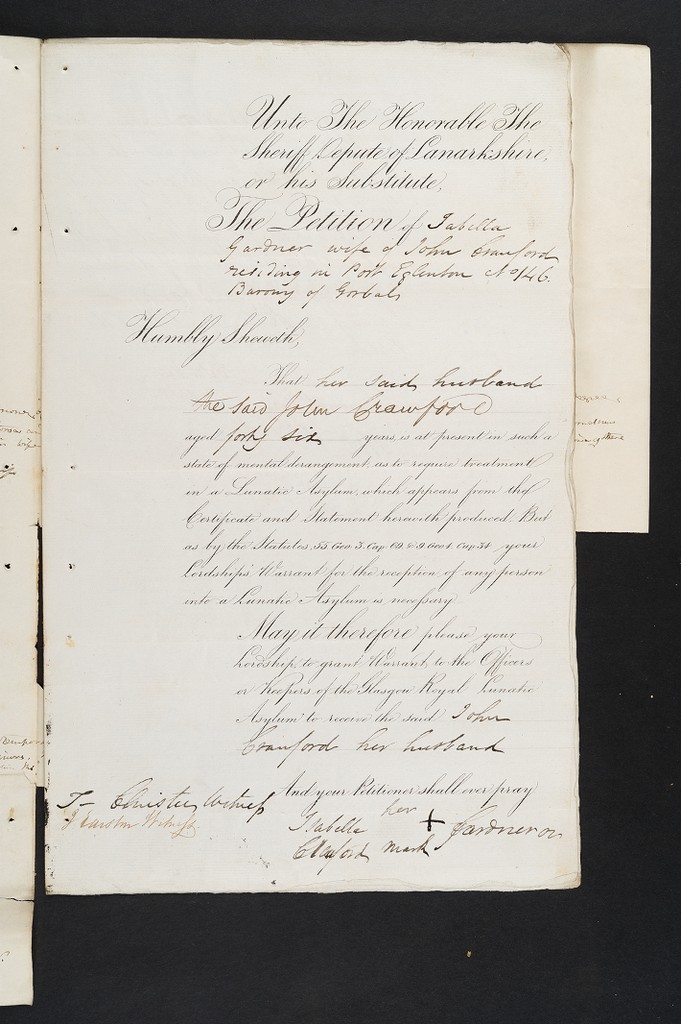 Unto The Honorable The
Sheriff Depute of Lanarkshire,
or his Substitute,
The Petition of Isabella
Gardner wife of John Crawford
residing in Port Eglinton No 146.
Barony of Gorbals
Humbly Sheweth,
That her said husband
the said John Crawford
aged forty six years, is at present in such a
state of mental derangement, as to require treatment
in a Lunatic Asylum, which appears from the
Certificate and Statement herewith produced. But
as by the Statutes, 55 Geo. 3. Cap. 69, & 9 Geo 4. Cap. 34 your
Lordship's Warrant for the reception of any person
into a Lunatic Asylum is necessary.
May it therefore please your
Lordship, to grant Warrant, to the Officers
or Keepers of the Glasgow Royal Lunatic
Asylum to receive the said John
Crawford her husband
And your Petitioner shall ever pray
Witness
Witness
Isabella her + Gardner or
Crawford mark